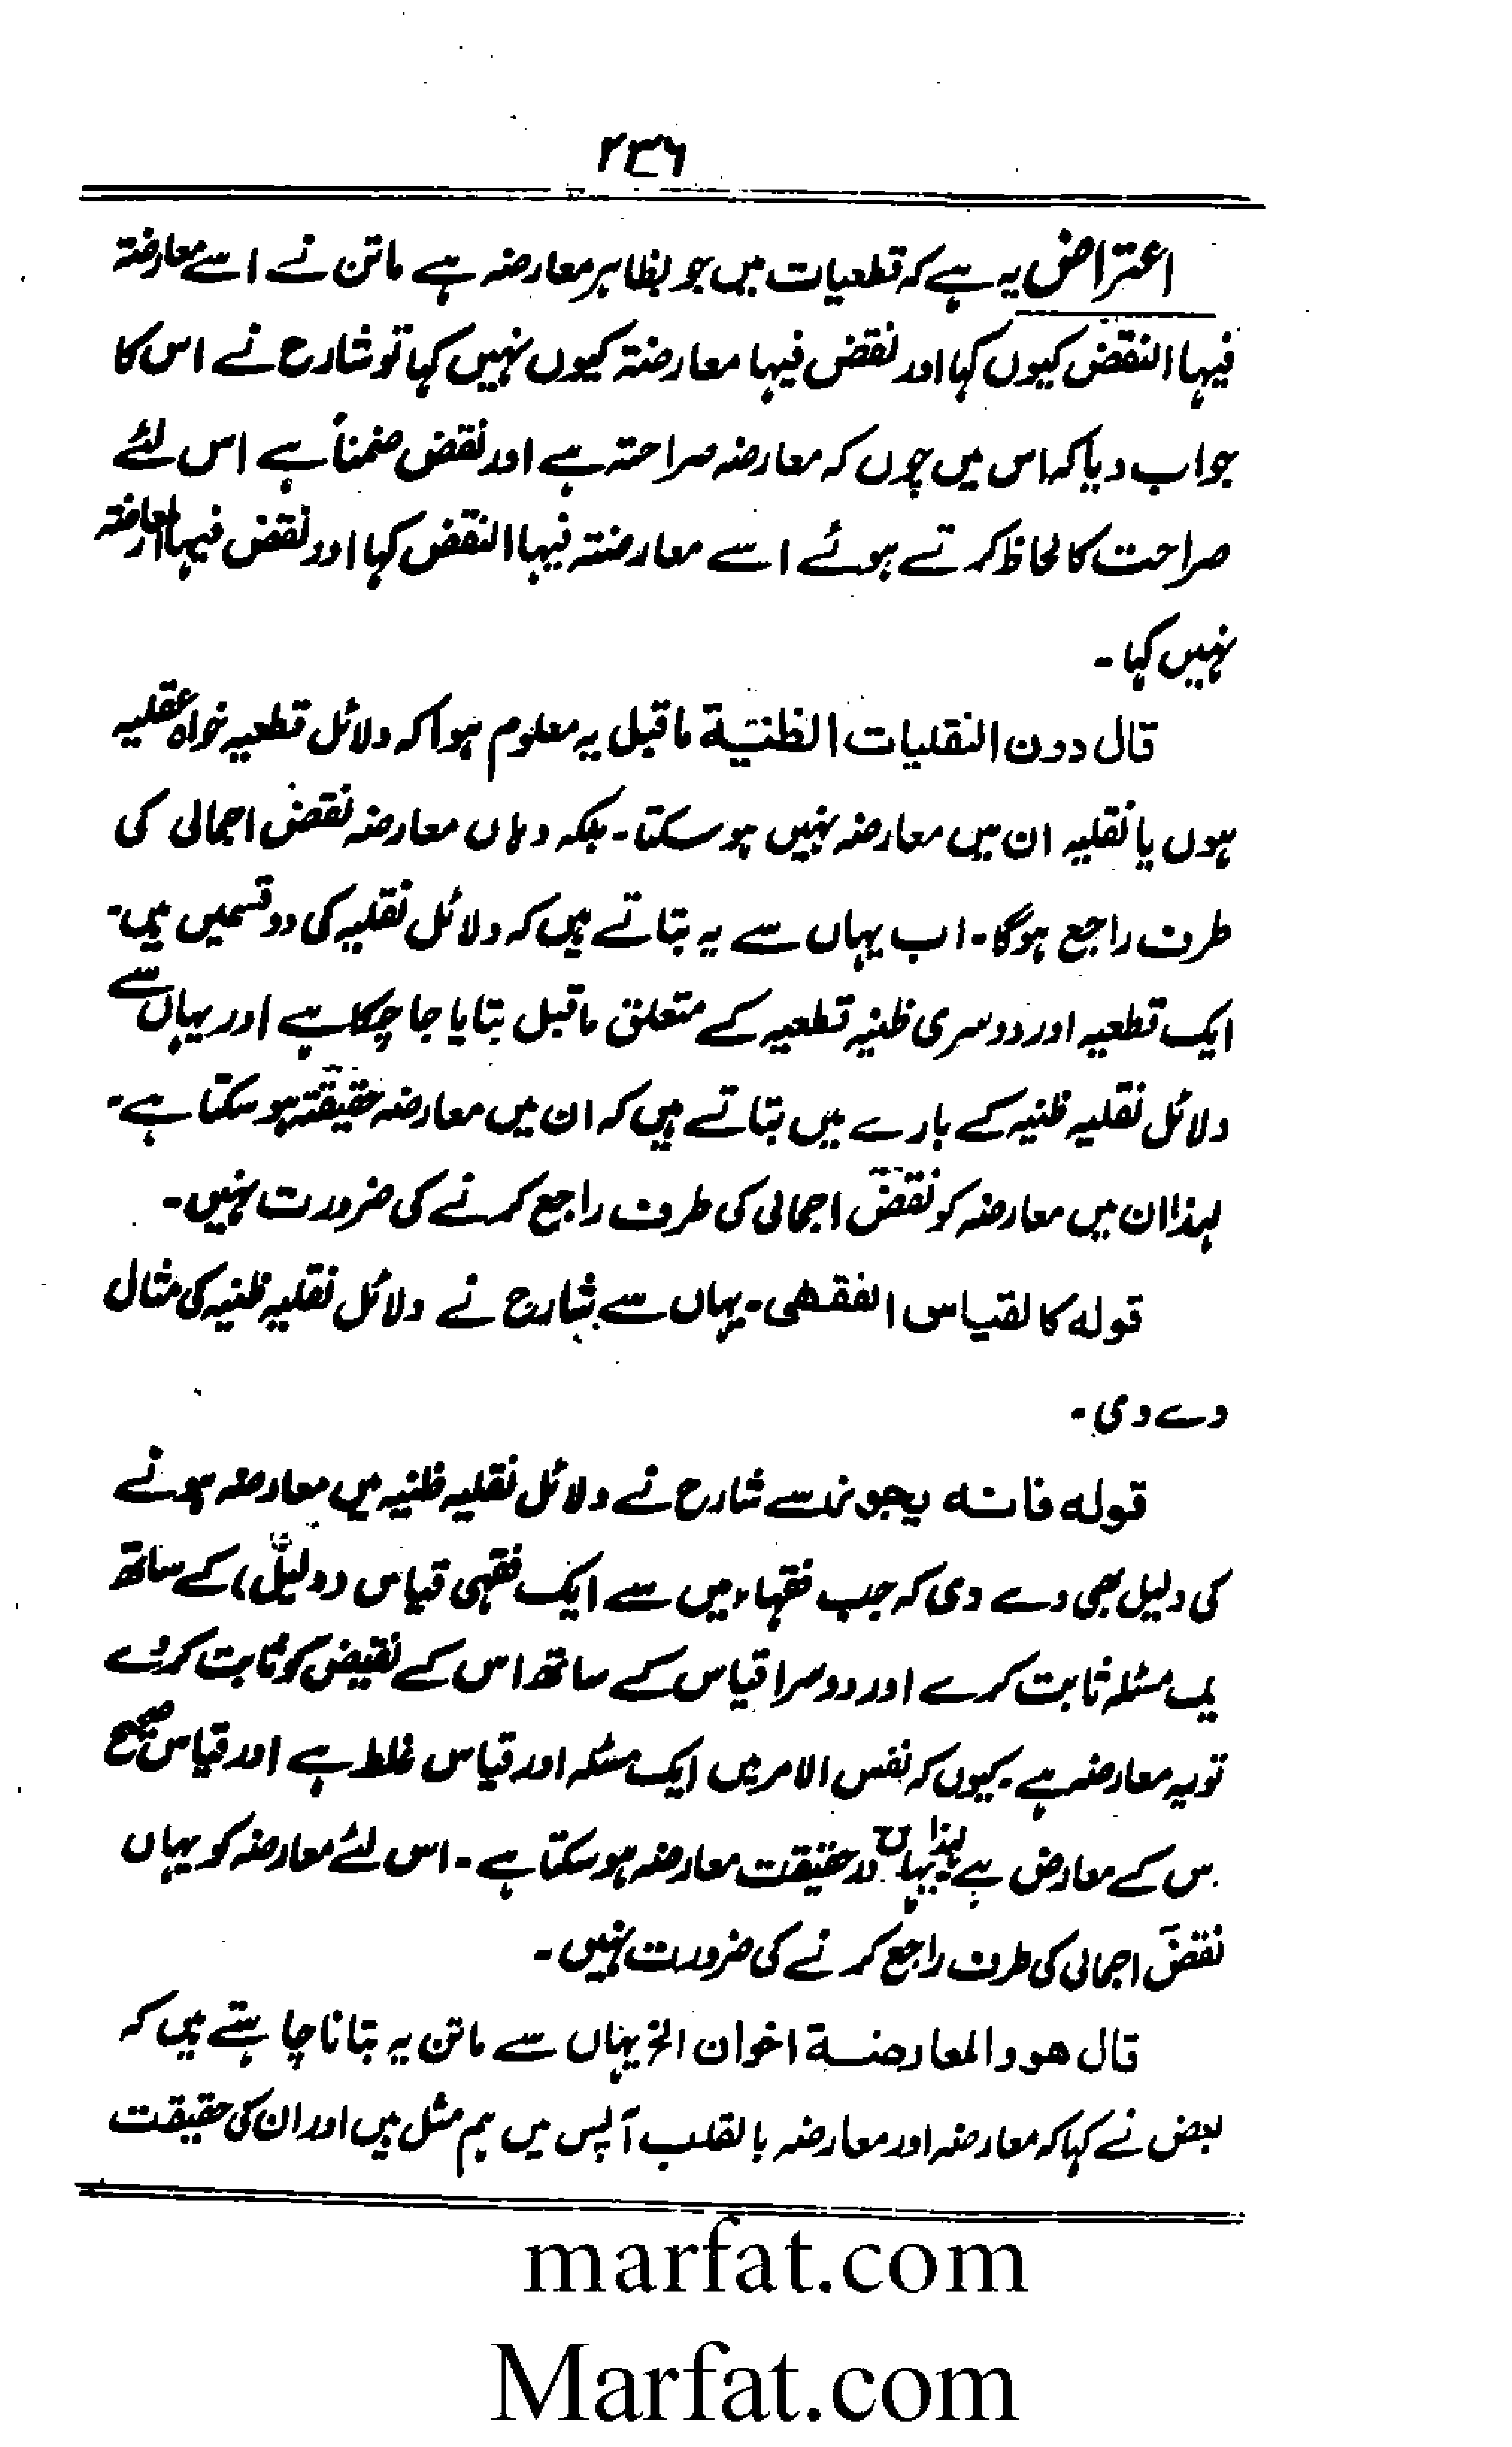 ۲۳۶
اعتراض یہ ہے کہ قطعیات میں جو بظاہر معارضہ ہے ماتن نے اسے معارضۃ
فیہا النقض کیوں کہا اور نقض فیہا معارضۃ کیوں نہیں کہا تو شارح نے اس کا
جواب دیا کہ اس میں چوں کہ معارضہ صراحتہ ہے اور نقض ضمناً ہے اس لئے
صراحت کا لحاظ کرتے ہوئے اسے معارضتہ فیہا النقض کہا اور نقض فیہا المعارضتہ
نہیں کہا۔
قال دون النقلیات الظنیة ماقبل یہ معلوم ہوا کہ دلائل قطعیہ خواہ عقلیہ
ہوں یا نقلیہ ان میں معارضہ نہیں ہو سکتا۔ بلکہ وہاں معارضہ نقض اجمالی کی
طرف راجع ہوگا۔ اب یہاں سے یہ بتاتے ہیں کہ دلائل نقلیہ کی دو قسمیں ہیں۔
ایک قطعیہ اور دوسری ظنیہ قطعیہ کے متعلق ماقبل بتایا جا چکا ہے اور یہاں سے
دلائل نقلیہ ظنیہ کے بارے میں بتاتے ہیں کہ ان میں معارضہ حقیقتہ ہو سکتا ہے۔
لہذا ان میں معارضہ کو نقض اجمالی کی طرف راجع کرنے کی ضرورت نہیں۔
قوله کالقیاس الفقهی۔ یہاں سے شارح نے دلائل نقلیہ ظنیہ کی مثال
دے دی۔
قوله فانه یجوز سے شارح نے دلائل نقلیہ ظنیہ میں معارضہ ہونے
کی دلیل بھی دے دی کہ جب فقہاء میں سے ایک فقہی قیاس (دلیل) کے ساتھ
یک مسئلہ ثابت کرے اور دوسرا قیاس کے ساتھ اس کے نقیض کو ثابت کردے
تو یہ معارضہ ہے۔ کیوں کہ نفس الامر میں ایک مسئلہ اور قیاس غلط ہے اور قیاس صحیح
س کے معارض ہے لہذا یہاں در حقیقت معارضہ ہو سکتا ہے۔ اس لئے معارضہ کو یہاں
نقض اجمالی کی طرف راجع کرنے کی ضرورت نہیں۔
قال هو والمعارضة اخوان الخ یہاں سے ماتن یہ بتانا چاہتے ہیں کہ
بعض نے کہا کہ معارضہ اور معارضہ بالقلب آپس میں ہم مثل ہیں اور ان کی حقیقت
marfat.com
Marfat.com